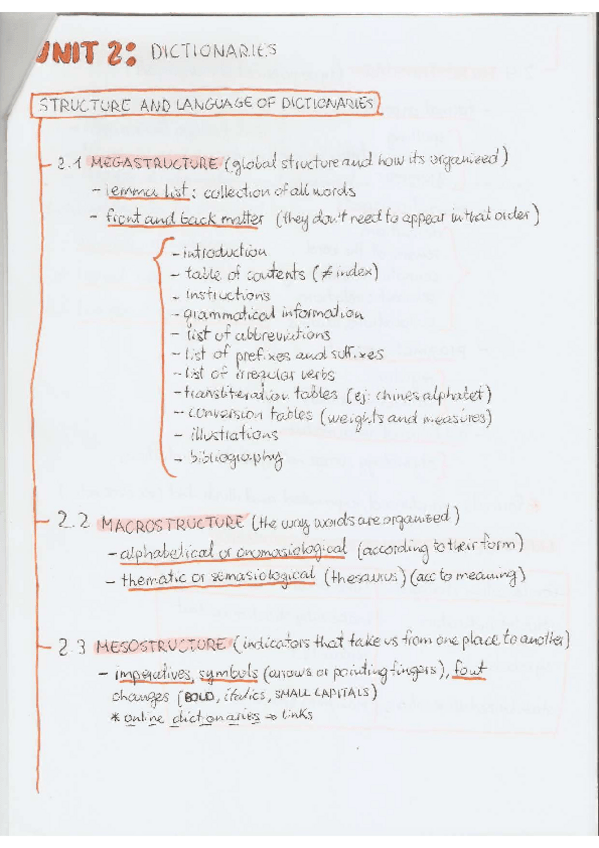 UNIT 2: DICTIONARIES
STRUCTURE AND LANGUAGE OF DICTIONARIES
2.1 MEGASTRUCTURE (global structure and how its organized)
- lemma list: collection of all words
- front and back matter (they don't need to appear in that order)
- introduction
- table of contents (≠ index)
- instructions
- grammatical information
- list of abbreviations
- list of prefixes and suffixes
- list of irregular verbs
- transliteration tables (ej: chines alphabet)
- conversion tables (weights and measures)
- illustrations
- bibliography
2.2 MACROSTRUCTURE (the way words are organized)
- alphabetical or onomasiological (according to their form)
- thematic or semasiological (thesaurus) (acc to meaning)
2.3 MESOSTRUCTURE (indicators that take us from one place to another)
- imperatives, symbols (arrows or pointing fingers), font
changes (BOLD, italics, SMALL CAPITALS)
* online dictionaries → links